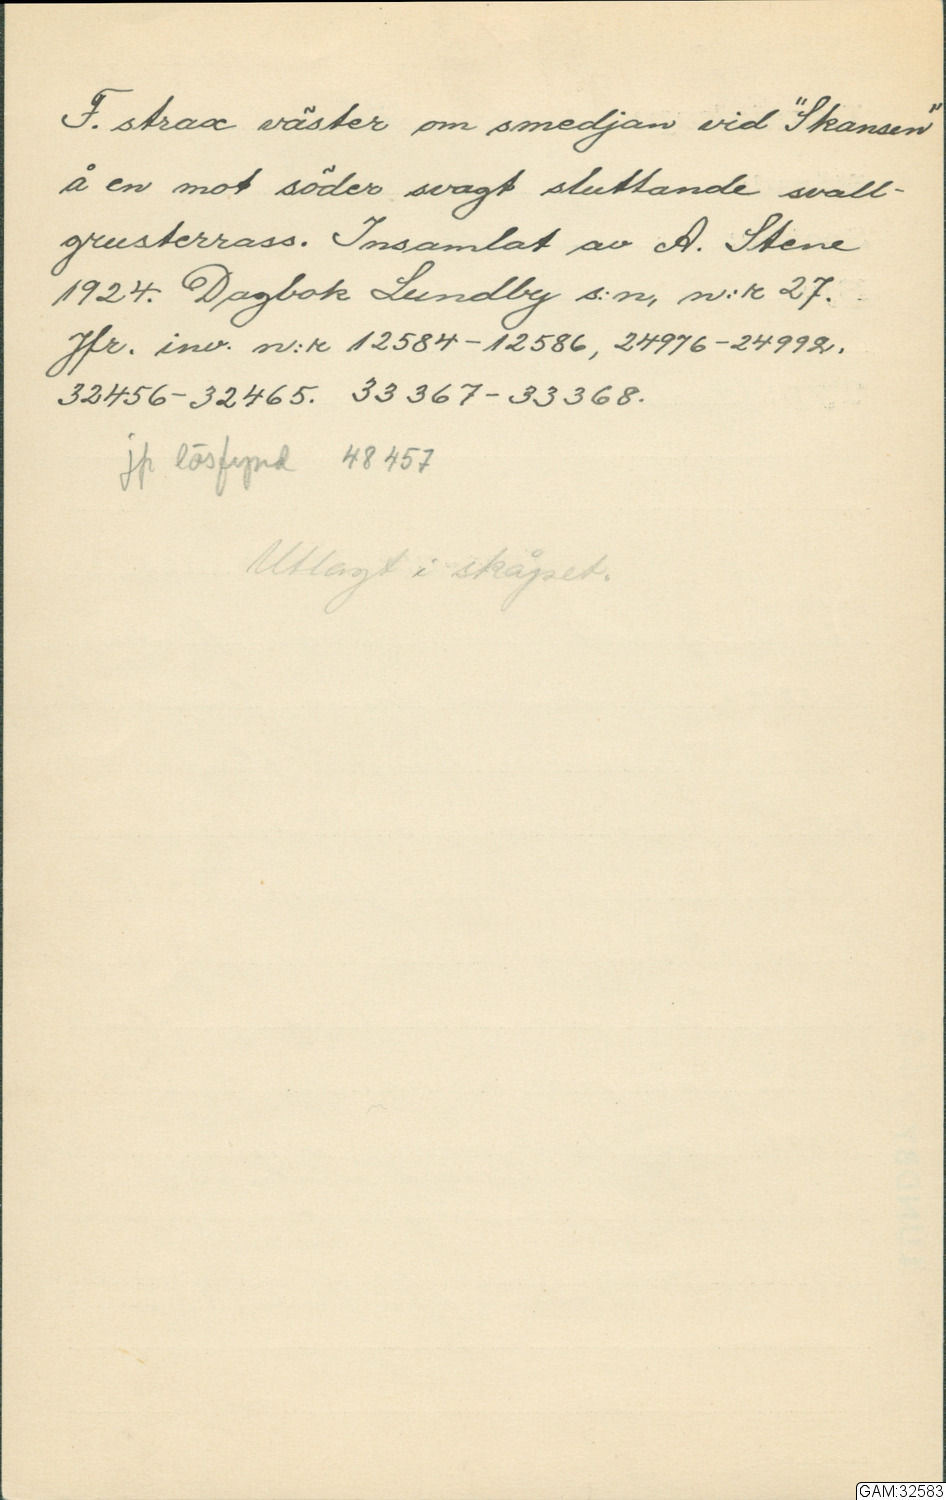 F. strax väster om smedjan vid "Skansen"
å en mot söder svagt sluttande svall-
grusterrass. Insamlat av A. Stene
1924. Dagbok Lundby s:n, n:r 27.
Jfr. inv. n:r 12584-12586, 24976-24992.
32456-32465. 33367-33368.
jfr lösfynd 48457
Utlagt i skåpet.
GAM:32583